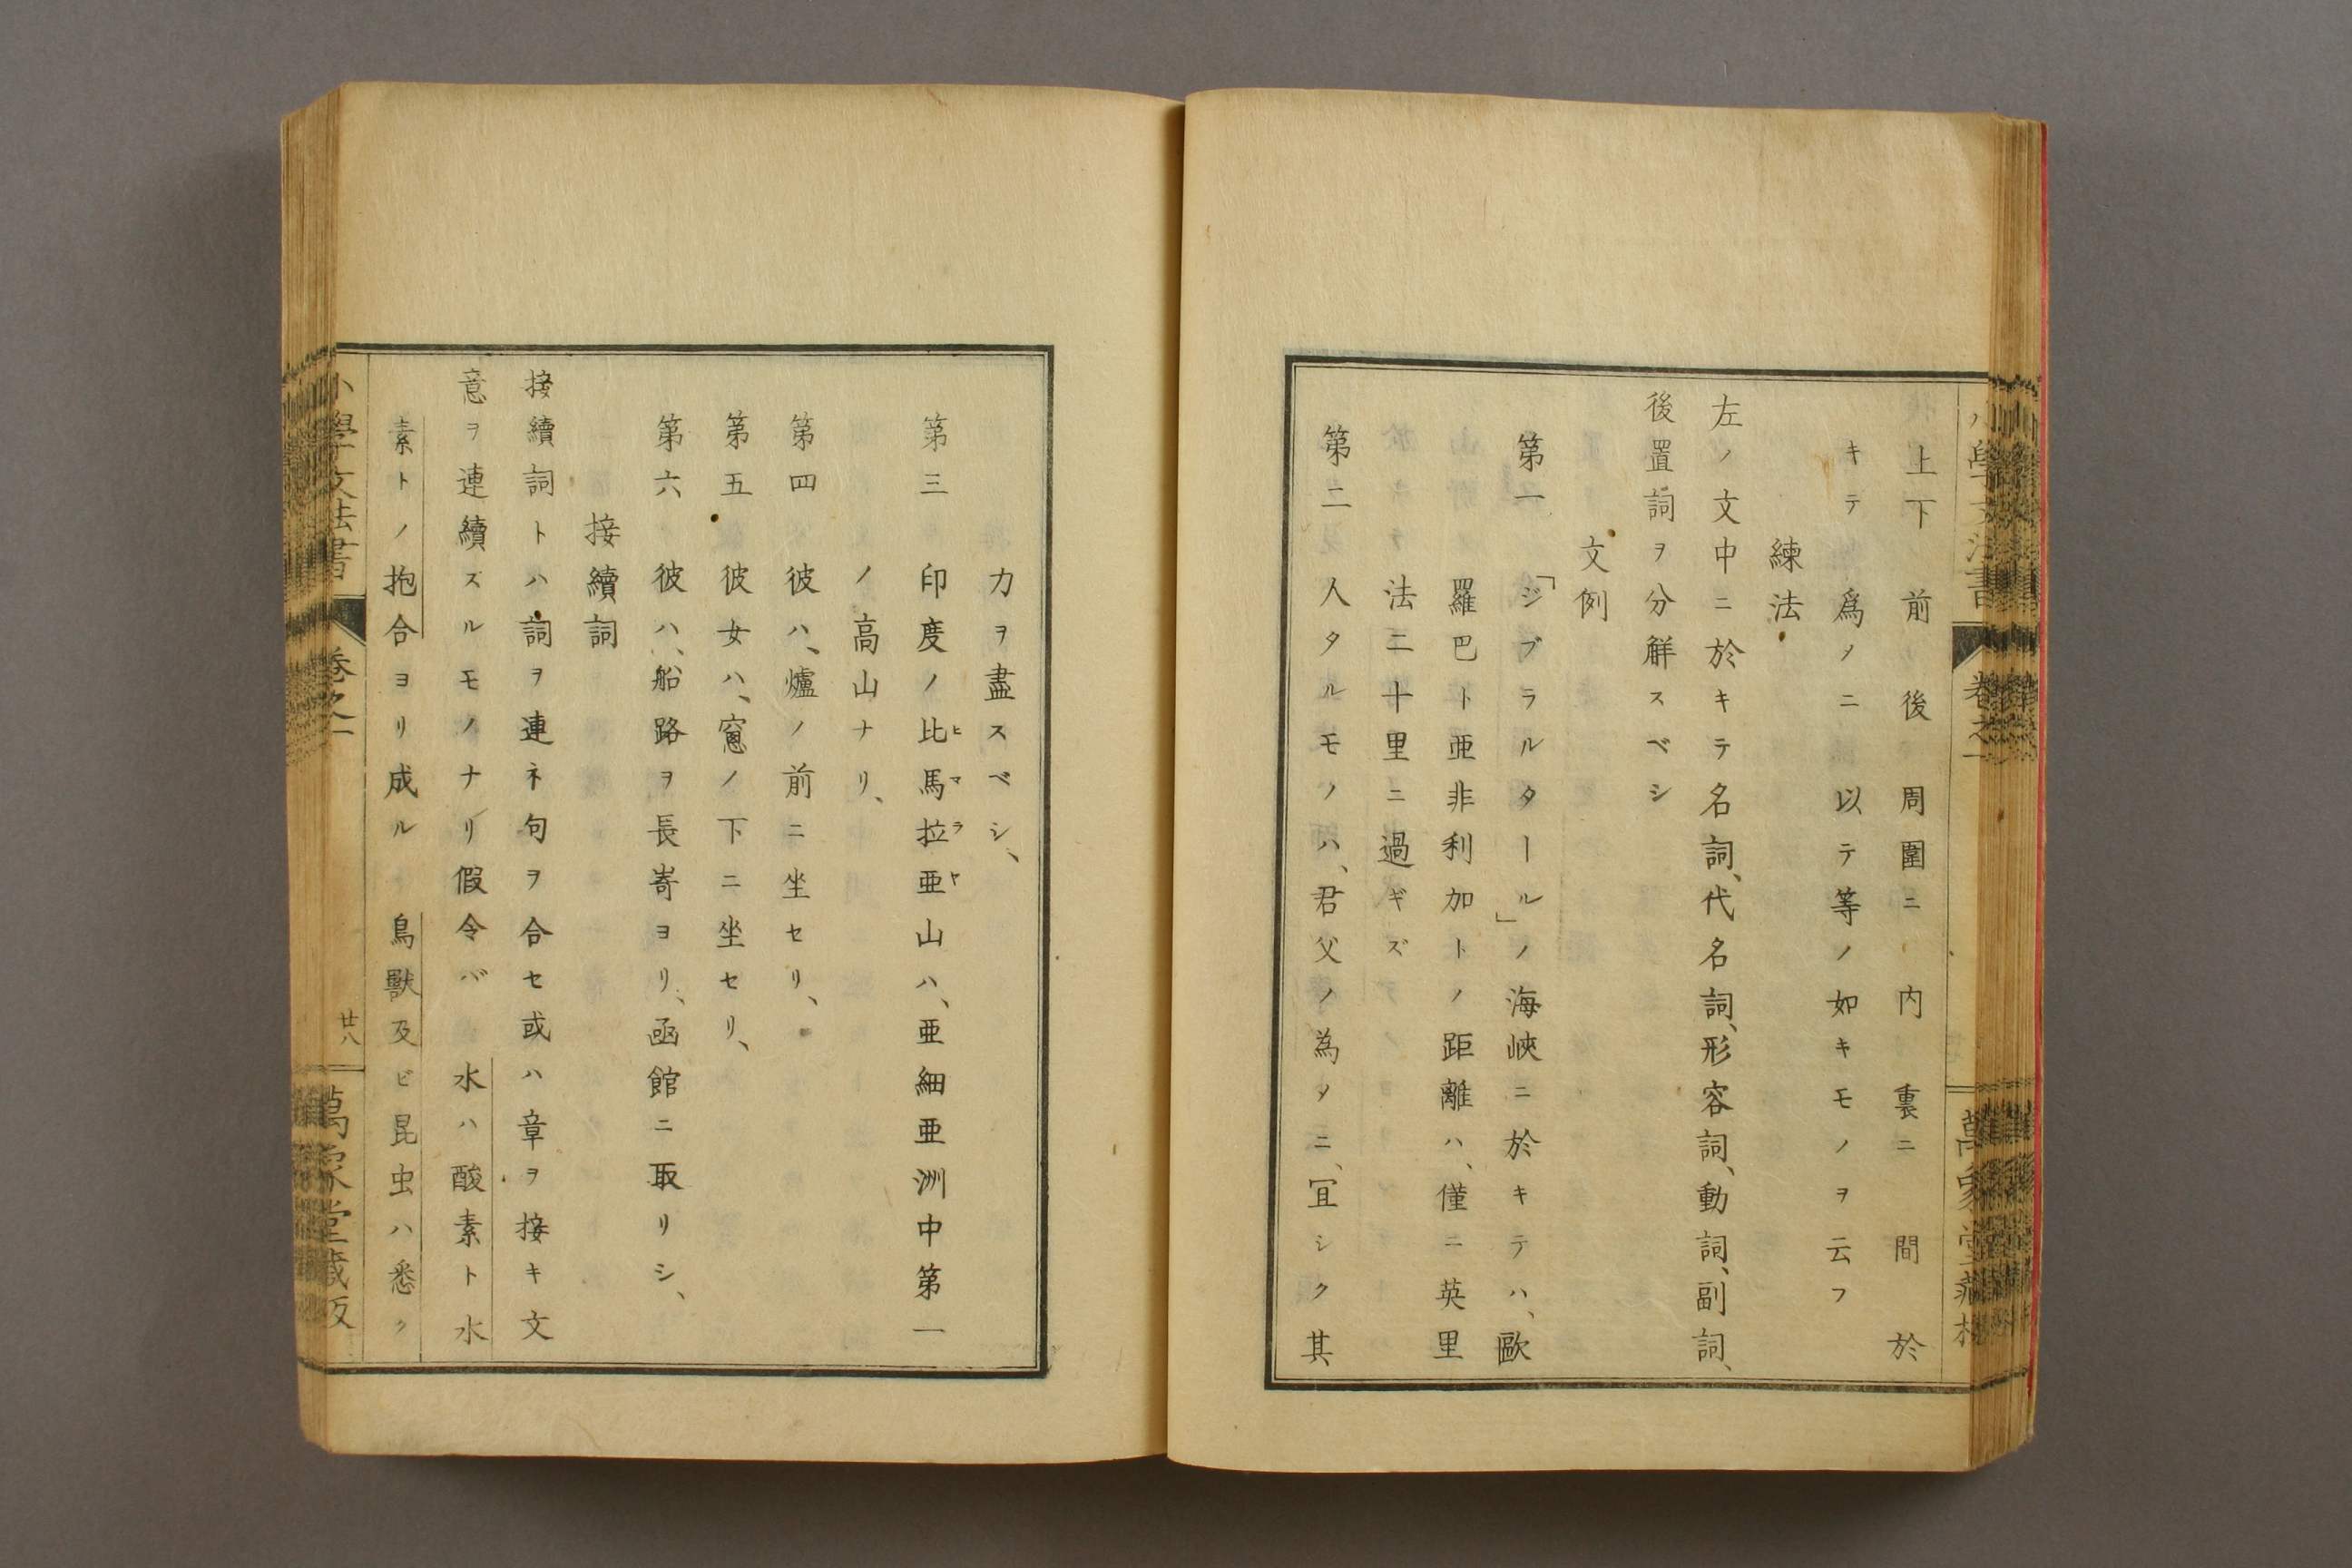 上下 前 後 周圍ニ 内 裏ニ 間 於
キテ 爲ノニ 以テ等ノ如キモノヲ云フ
練法
左ノ文中ニ於キテ名詞、代名詞、形容詞、動詞、副詞、
後置詞ヲ分解スベシ
文例
第一 「ジブラルタール」ノ海峽ニ於キテハ、歐
羅巴ト亜非利加トノ距離ハ、僅ニ英里
法二十里ニ過ギズ
第二 人タルモノハ、君父ノ為メニ、冝シク其
小學文法書 卷之一 萬象堂藏板
力ヲ盡スベシ、
第三 印度ノ比馬拉亜山ハ、亜細亜洲中第一
ヒマラヤ
ノ高山ナリ、
第四 彼ハ、爐ノ前ニ坐セリ、
第五 彼女ハ、窻ノ下ニ坐セリ、
第六 彼ハ、船路ヲ長嵜ヨリ、函館ニ取リシ、
接續詞
接續詞トハ詞ヲ連ネ句ヲ合セ或ハ章ヲ接キ文
意ヲ連續ズルモノナリ假令バ 水ハ酸素ト水
素トノ抱合ヨリ成ル 鳥獸及ビ昆虫ハ悉ク
小學文法書 卷之一 廿八 萬象堂藏板